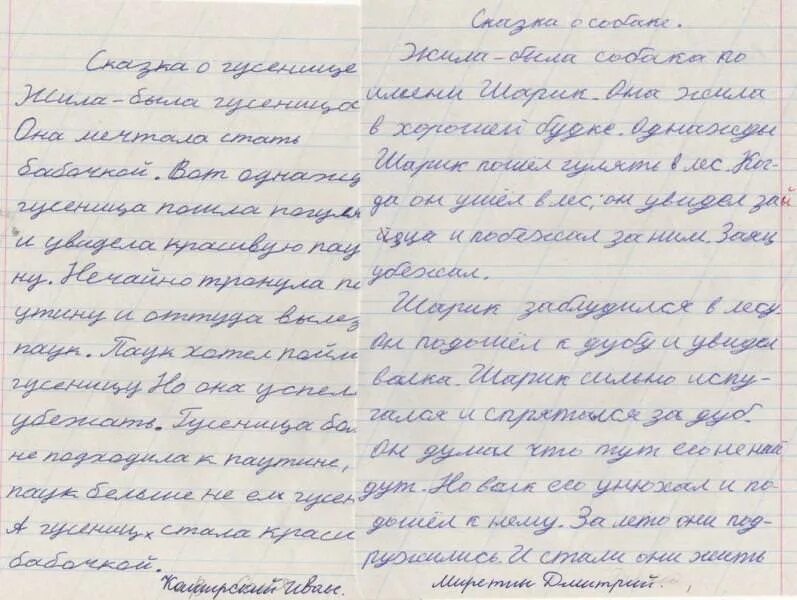 Сказка о гусенице
Жила-была гусеница
Она мечтала стать
бабочкой. Вот однажд
гусеница пошла погуля
и увидела красивую пау
ну. Нечайно тронула па
утину и оттуда вылез
паук. Паук хотел пойм
гусеницу Но она успел
убежать. Гусеница бол
не подходила к паутине,
паук бельше не ел гусен
А гусениц стала краси
бабочкой.
Каширский Иван.
Сказка о собаке.
Жила-была собака по
имени Шарик. Она жила
в хорошей будке. Однажды
Шарик пошёл гулять в лес. Ког-
да он ушёл в лес, он увидел зай
йца и побежал за ним. Заяц
убежал.
Шарик заблудился в лесу.
Он подошёл к дубу и увидел
волка. Шарик сильно испу-
гался и спрятылся за дуб.
Он думал что тут его не най
дут. Но волк его унюхал и по-
дошёл к нему. За лето они под-
ружились. И стали они жить
Миретин Дмитрий.